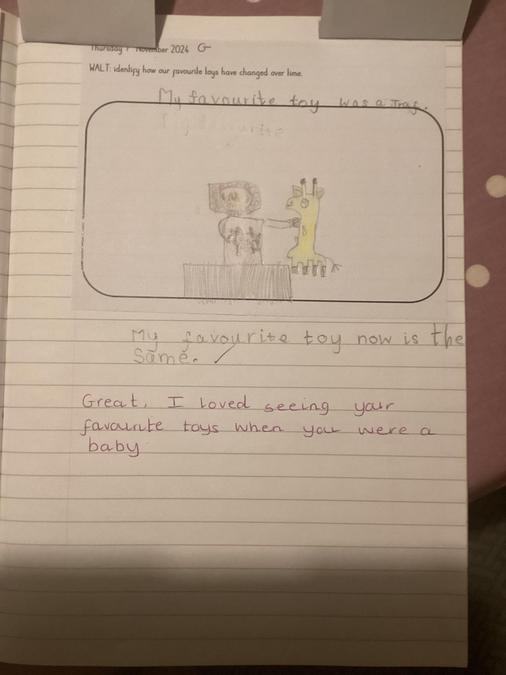 Thursday 7 November 2024 G
WALT: identify how our favourite toys have changed over time.
My favourite toy was a
favourite
My favourite toy now is the
same. ✓
Great, I loved seeing your
favourite toys when you were a
baby